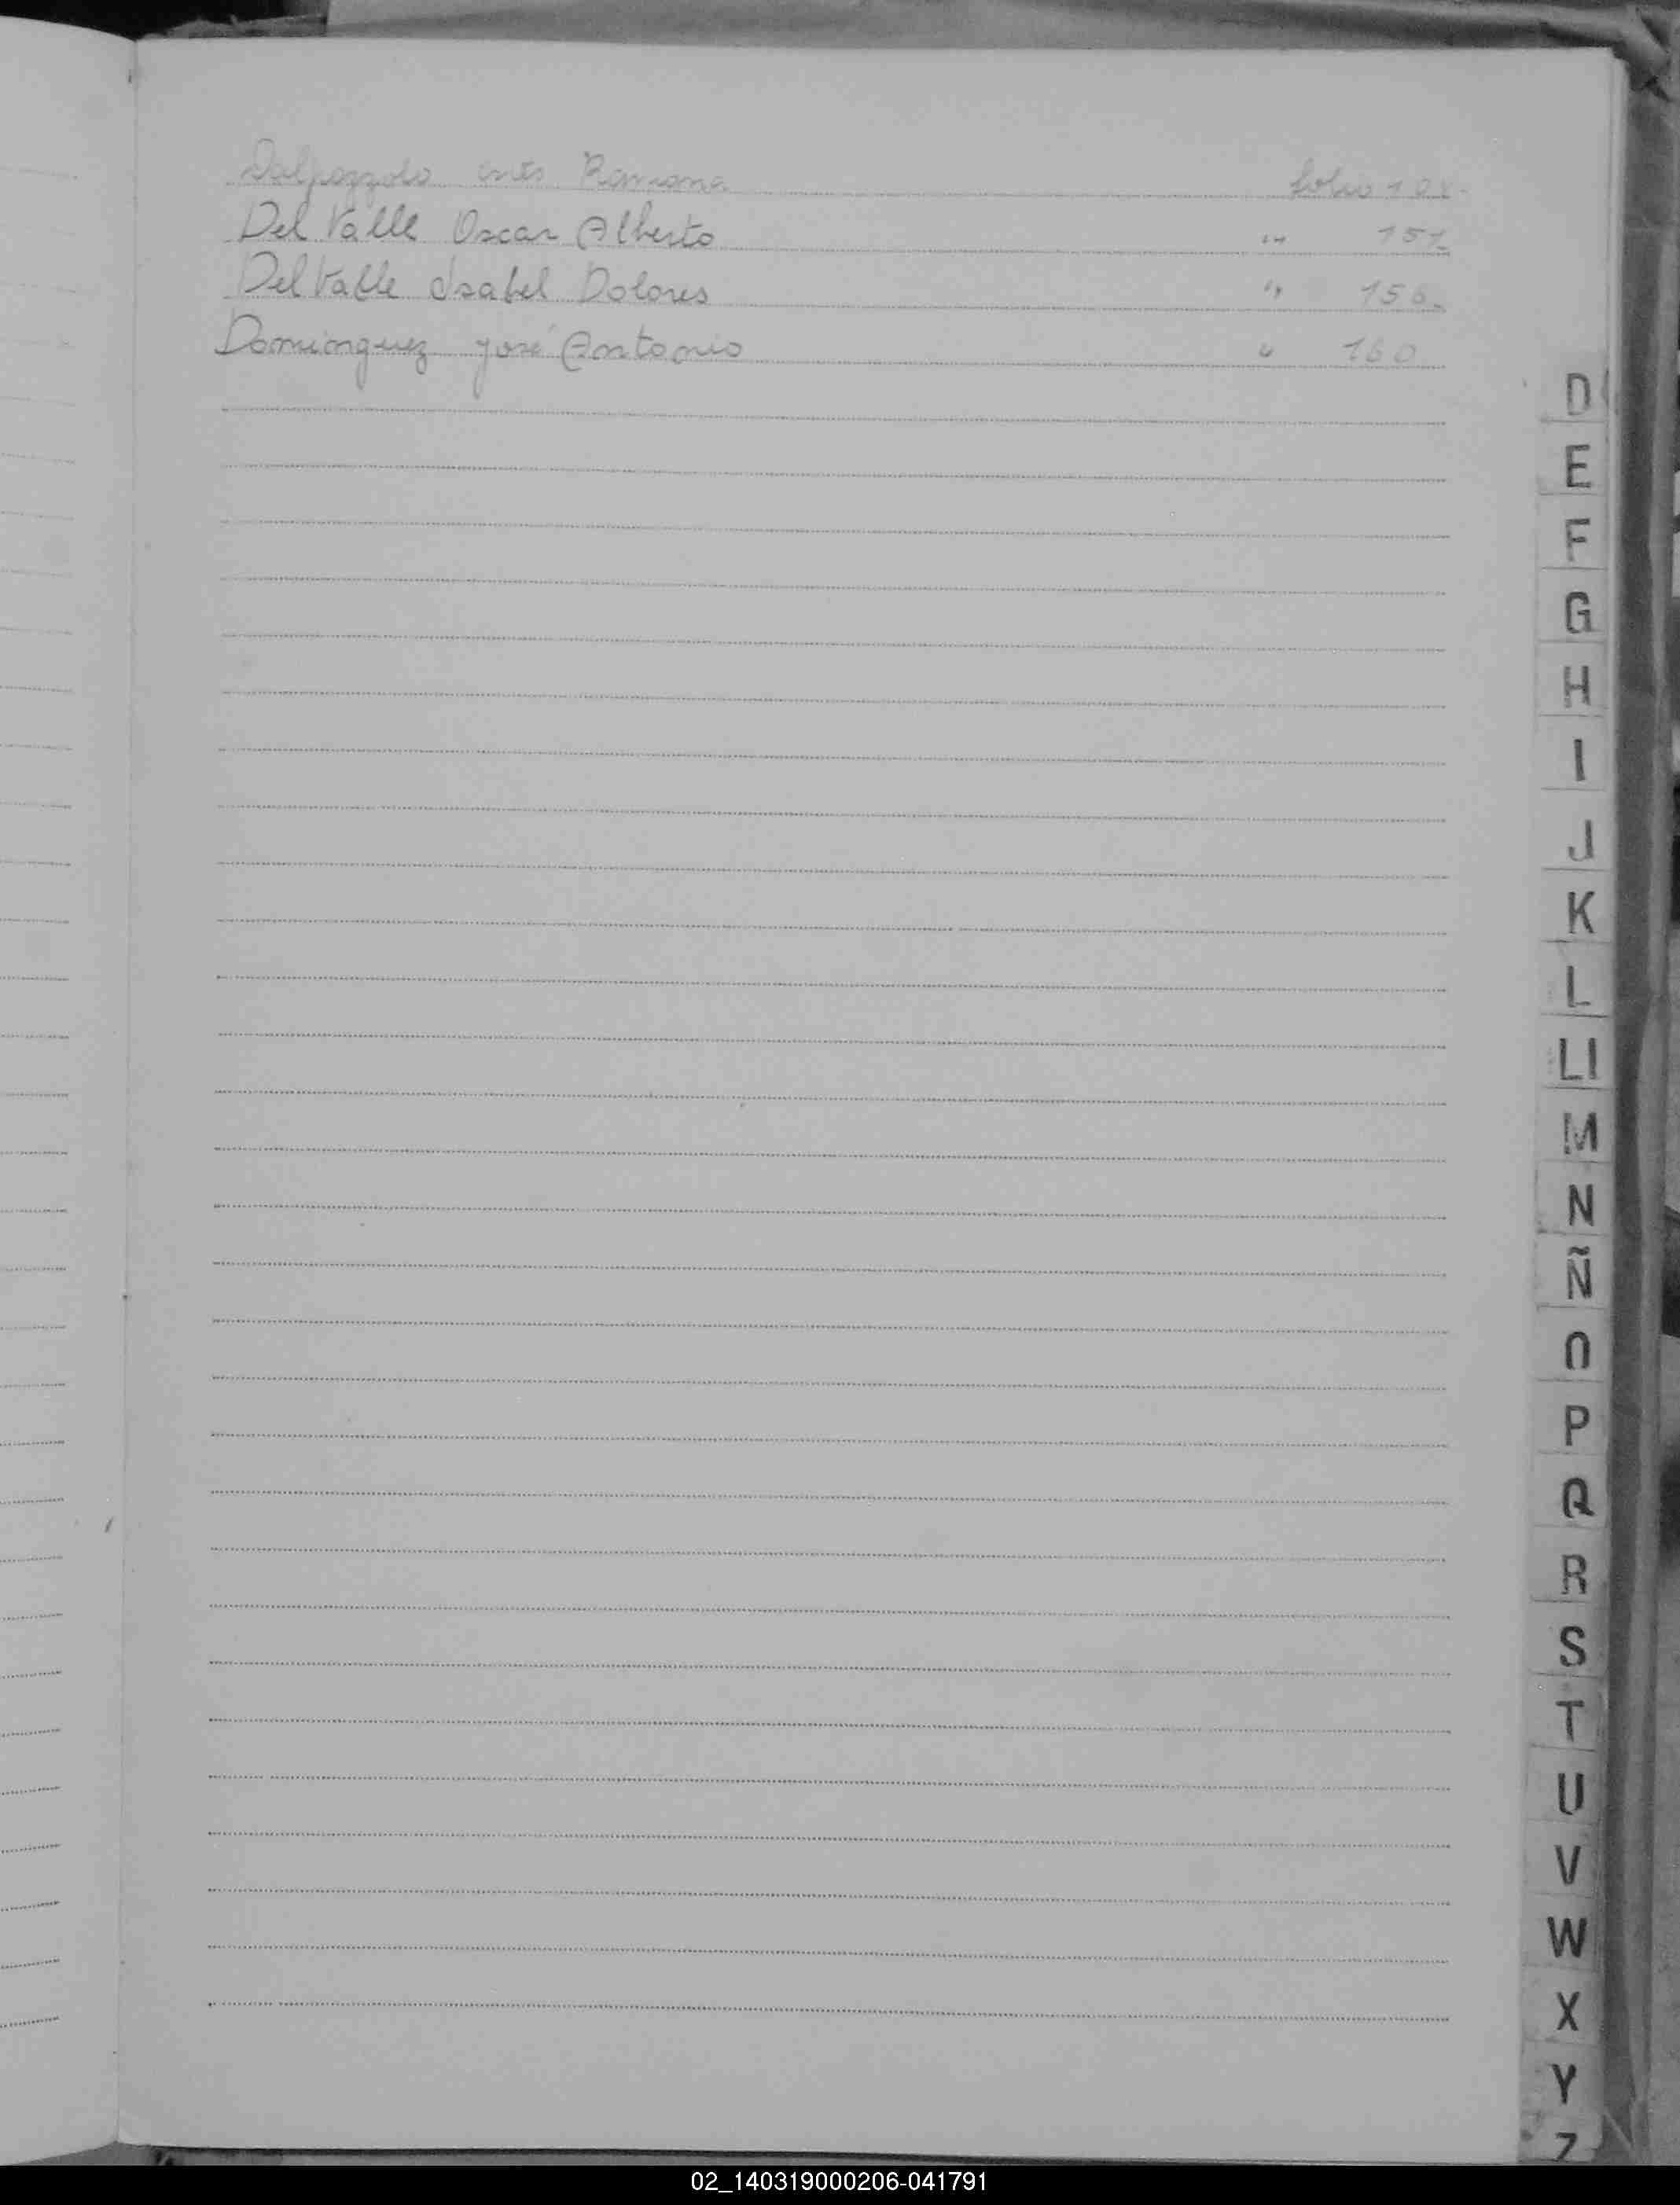 Dalpozzolo Inés Ramona folio
Del Valle Oscar Alberto " 151-
Del Valle Isabel Dolores " 156-
Dominguez José Antonio " 160
D
E
F
G
H
I
J
K
L
Ll
M
N
Ñ
O
P
Q
R
S
T
U
V
W
X
Y
Z
02_140319000206-041791